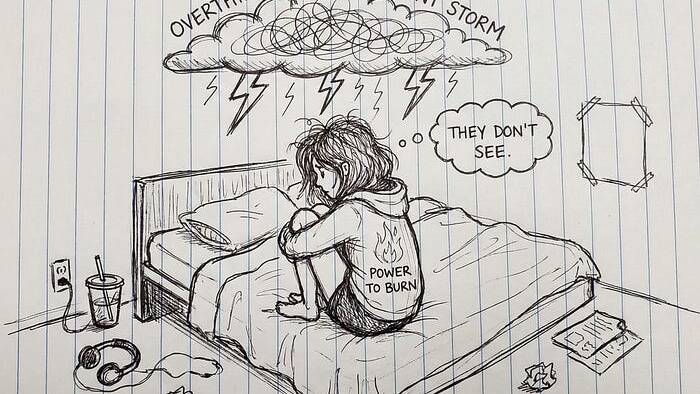 STORM
THEY DON'T
SEE.
POWER
TO BURN